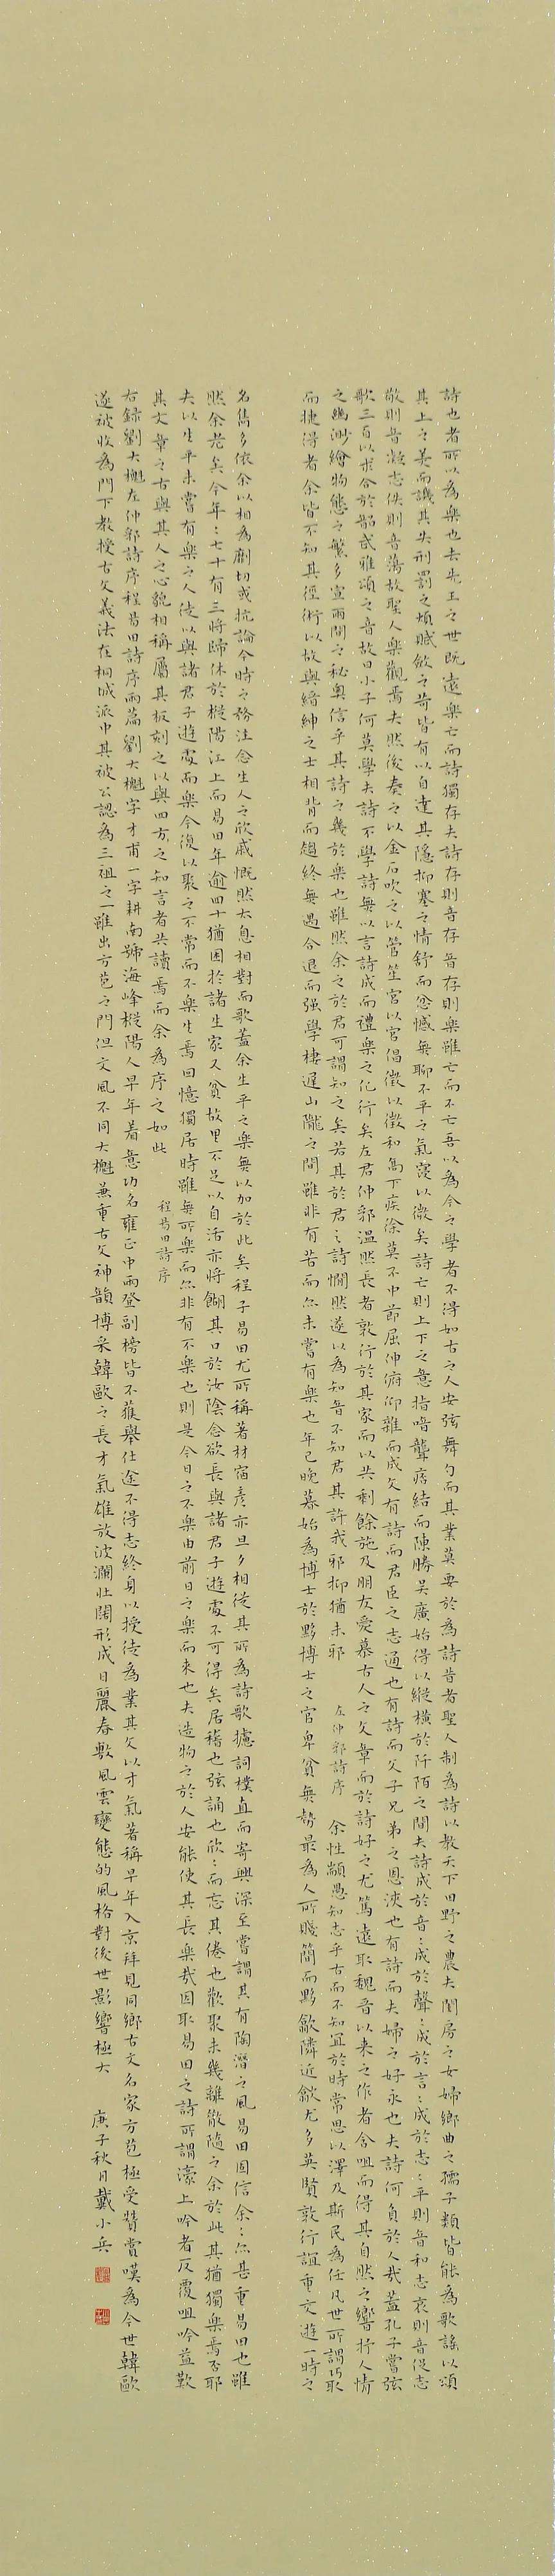 詩也者所以為樂也去先王之世既遠樂亡而詩獨存夫詩存則音存音存則樂雖亡而不亡吾以為今之學者不得如古之人安弦舞勺而其業莫要於為詩昔者聖人制為詩以教天下田野之農夫閨房之女婦鄉曲之孺子類皆能為歌謠以頌
其上之美而譏其失刑罰之煩賦斂之苛皆有以自達其隱抑塞之情舒而忿憾無聊不平之氣寖以微矣詩亡則上下之意指喑聾痞結而陳勝吳廣始得以縱橫於阡陌之間夫詩成於音：成於聲：成於言：成於志：平則音和志哀則音促志
敬則音凝志佚則音蕩故聖人樂觀焉夫然後奏之以金石吹之以管笙宮以宮倡徵以徵和高下疾徐莫不中節屈伸俯仰雜而成文有詩而君臣之志通也有詩而父子兄弟之恩浹也有詩而夫婦之好永也夫詩何負於人哉蓋孔子嘗弦
歌三百以求合於韶武雅頌之音故曰小子何莫學夫詩不學詩無以言詩成而禮樂之化行矣左君仲郛溫然長者敦行於其家而以其剩餘施及朋友愛慕古人之文章而於詩好之尤篤遠取魏晉以來之作者含咀而得其自然之響抒人情
之幽渺繪物態之繁多宣兩間之秘奧信乎其詩之幾於樂也雖然余之於君可謂知之矣若其於君之詩惘然遂以為知音不知君其許我邪抑猶未邪 左仲郛詩序 余性顓愚知志乎古而不知宜於時常思以澤及斯民為任凡世所謂巧取
而捷得者余皆不知其徑術以故與縉紳之士相背而趨終無遇今退而強學棲遲山隴之間雖非有苦而亦未嘗有樂也年已晚暮始為博士於黟博士之官卑貧無勢最為人所賤簡而黟歙隣近歙尤多英賢敦行誼重交遊一時之
名雋多依余以相為劘切或抗論今時之務注念生人之欣戚慨然太息相對而歌蓋余生平之樂無以加於此矣程子易田尤所稱著材宿彥亦旦夕相從其所為詩歌攄詞樸直而寄興深至嘗謂其有陶潛之風易田固信余：亦甚重易田也雖
然余老矣今年：七十有三將歸休於樅陽江上而易田年逾四十猶困於諸生家又貧故里不足以自活亦將餬其口於汝陰念欲長與諸君子遊處不可得矣居稽也弦誦也欣：而忘其倦也歡聚未幾離散隨之余於此其猶獨樂焉否耶
夫以生平未嘗有樂之人徒以與諸君子遊處而樂今復以聚之不常而不樂生焉回憶獨居時雖無所樂而亦非有不樂也則是今日之不樂由前日之樂而來也夫造物之於人安能使其長樂哉因取易田之詩所謂濠上吟者反覆咀吟益歎
其文章之古與其人之心貌相稱屬其板刻之以與四方之知言者共讀焉而余為序之如此 程易田詩序
右錄劉大櫆左仲郛詩序程易田詩序兩篇劉大櫆字才甫一字耕南號海峰樅陽人早年着意功名雍正中兩登副榜皆不獲舉仕途不得志終身以授徒為業其文以才氣著稱早年入京拜見同鄉古文名家方苞極受贊賞嘆為今世韓歐
遂被收為門下教授古文義法在桐城派中其被公認為三祖之一雖出方苞之門但文風不同大櫆兼重古文神韻博采韓歐之長才氣雄放波瀾壯闊形成日麗春敷風雲變態的風格對後世影響極大 庚子秋月戴小兵